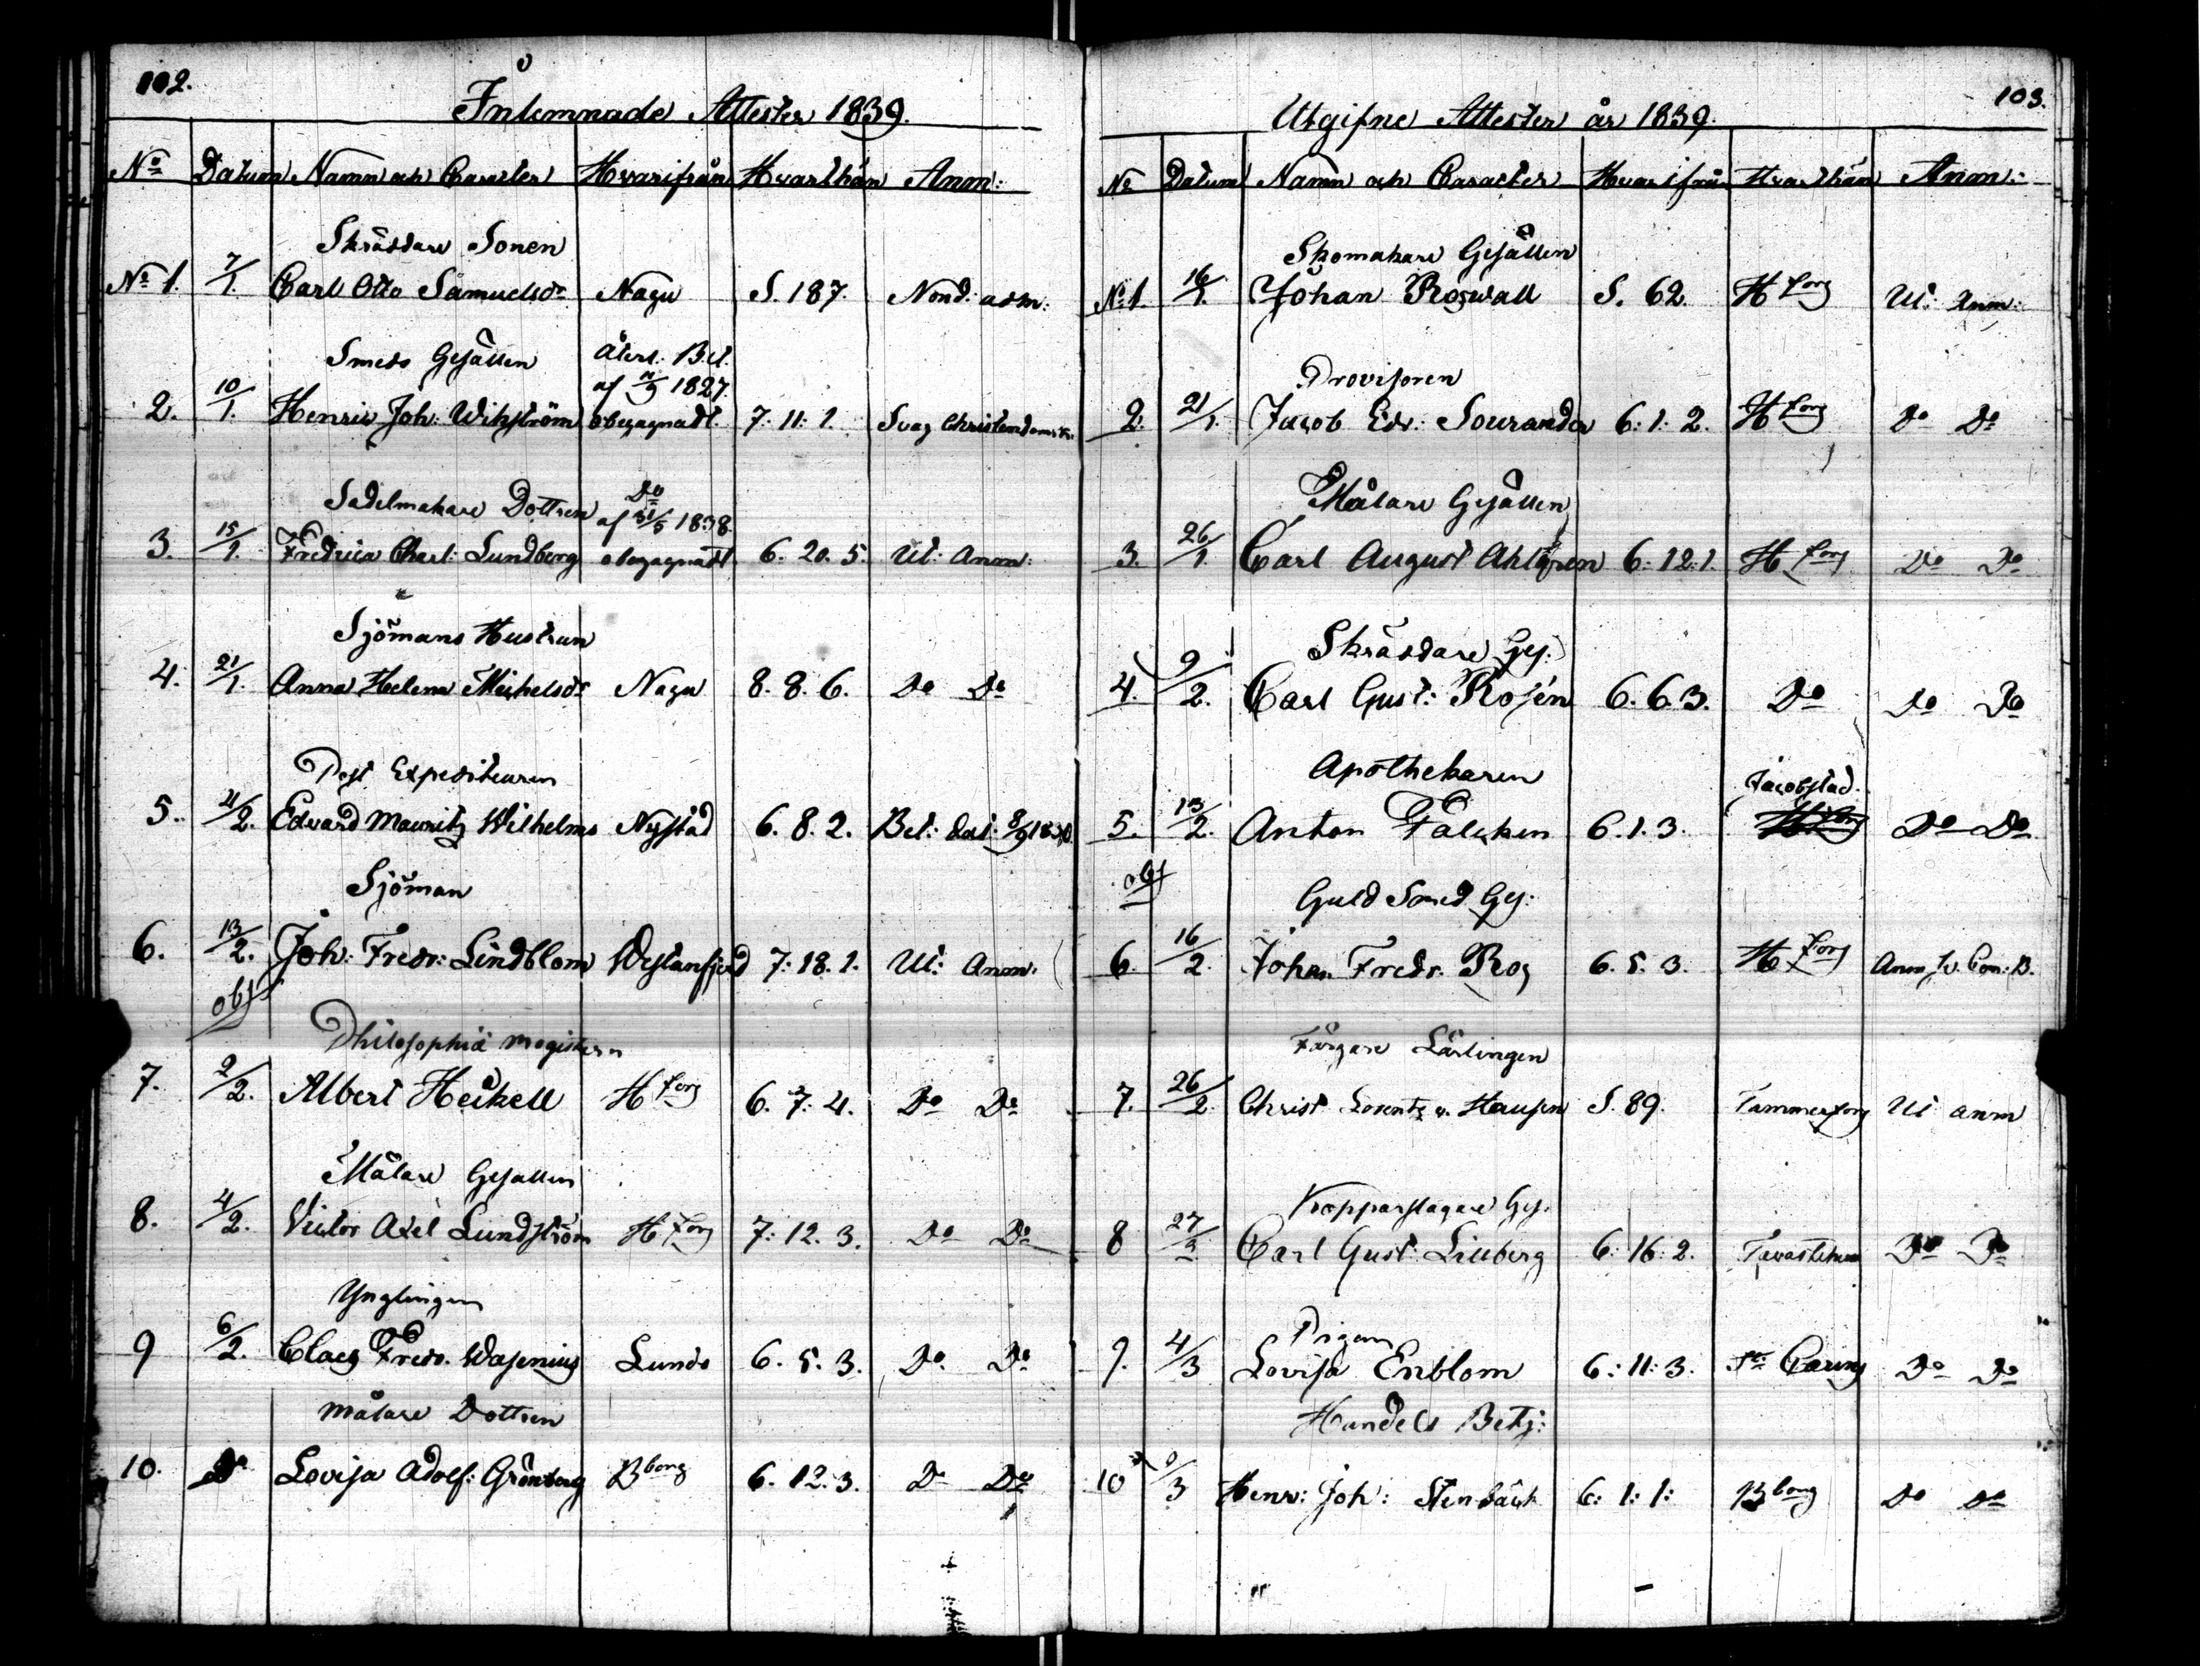 102.
Inlemnade Attester 1839.
No Datum Namn och Caracter Hvarifrån Hvarthän Anm:
Skräddare Sonen
No 1. 7/1. Carl Otto Samuelsdr Nagu S. 187. Nond: adm:
Smeds Gesällen Återl. Bet.
af 1827.
2. 10/1. Henric Joh: Wikström obegagnadt. 7: 11: 1. Svag Christendomsk:
Sadelmakare Dottren Do
af 31/5 1838.
3. 15/1. Fredrica Charl: Lundberg obegagnadt 6. 20. 5. Ut: Anm:
Sjömans Hustrun
4. 21/1. Anna Helena Michelsdr Nagu 8. 8. 6. Do Do
Post Expediteuren
5. 21/2. Edvard Mauritz Wilhelms Nystad 6. 8. 2. Bet: dat:
Sjöman
6. 13/2. Joh: Fredr: Lindblom Westanfjerd 7: 18. 1. Ut: Anm:
obs
Philosophiæ Magistern
7. 2/2. Albert Heikell Hfors 6. 7: 4. Do Do
Målare Gesallen
8. 4/2. Victor Axel Lundström Hfors 7: 12. 3. Do Do
Ynglingen
9 6/2. Claes Fredr. Wasenius Lundo 6. 5. 3. Do Do
Målare Dottren
10. Do Lovisa Adolf: Grönberg Bborg 6. 12. 3. Do Do
103.
Utgifne Attester år 1839.
No Datum Namn och Caracter Hvarifrån Hvarthän Anm:
Skomakare Gesällen
No 1. 16/1. Johan Roswall S. 62. Hfors Ut: Anm:
Provisoren
2. 21/1. Jacob Edv: Sourander 6: 1: 2. Hfors Do Do
Målare Gesällen
3. 26/1. Carl August Ahlgren 6: 12: 1. Hfors Do Do
Skräddare Ges:
4. 9/2. Carl Gust: Rosén 6. 6. 3. Do Do Do
Apothekaren Jacobstad.
5. 13/2. Anton Falcken 6. 1. 3. Hfors Do Do
obs Guld Smed Ges:
6. 16/2. Johan Fredr. Ros 6. 5. 3. Hfors Anm
Färgare Lärlingen
7. 26/2. Christ Lorentz v. Hausen S. 89. Tammerfors Ut anm
Kopparslagare Ges.
8 27/2 Carl Gust: Lilluberg 6: 16: 2. Tavastehus Do Do
Pigan
9. 4/3 Lovisa Enblom 6: 11: 3. St Carins Do Do
Handels Betj:
10 /3 Henr: Joh: Stenbäck 6: 1: 1: Bborg Do Do